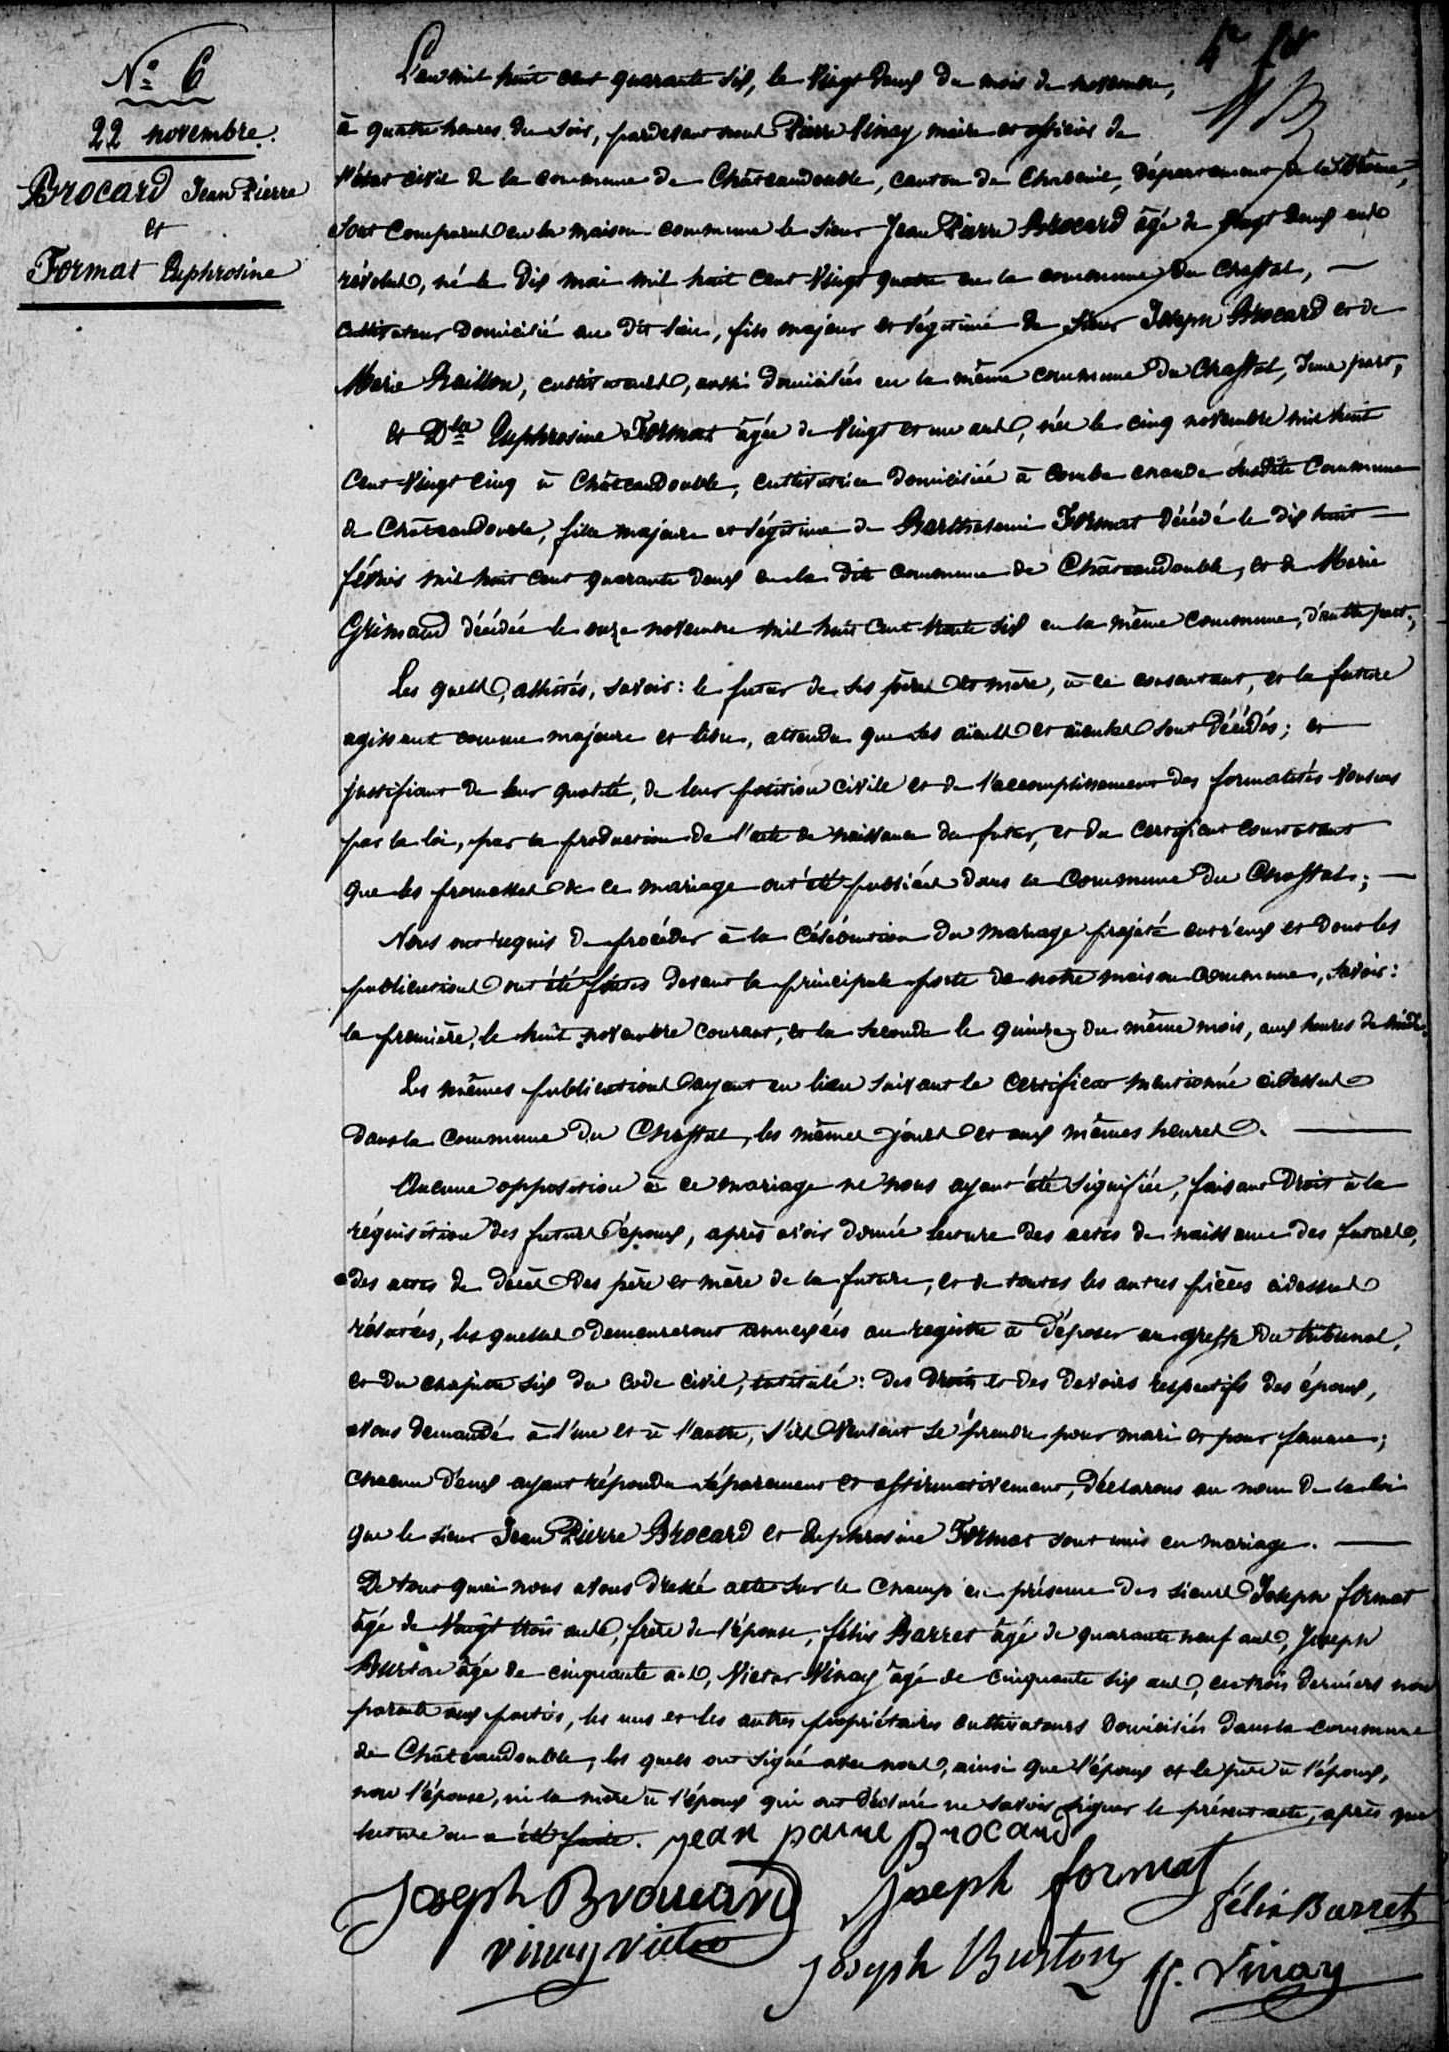 N° 6
22 novembre.
Brocard Jean Pierre
et
Format Euphrosine
L'an mil huit cent quarante six, le vingt deux du mois de novembre,
à quatre heures du soir, pardevant nous Pierre Vinay maire et officier de
l'état civil de la commune de Châteaudouble, canton de Chabeuil, département de la Drôme,
sont comparus en la maison commune le sieur Jean Pierre Brocard âgé de vingt deux ans
révolus, né le dix mai mil huit cent vingt quatre en la commune du Chaffal,
cultivateur domicilié au dit lieu, fils majeur et légitime de sieur Joseph Brocard et de
Marie Braillon, cultivateurs, aussi domiciliés en la même commune du Chaffal, d'une part,
et Dlle Euphrosine Format âgée de vingt et un ans, née le cinq novembre mil huit
cent vingt cinq à Châteaudouble, cultivatrice domiciliée à combe chaude susdite commune
de Châteaudouble, fille majeure et légitime de Barthelemi Format décédé le dix huit
février mil huit cent quarante deux en la dite commune de Châteaudouble, et de Marie
Grimaud décédée le onze novembre mil huit cent trente six en la même commune, d'autre part,
Les quels, assistés, savoir: le futur de ses père et mère, à ce consentant, et la future
agissant comme majeure et libre, attendu que ses aïeuls et aïeules sont décédés; et
justifiant de leur qualité, de leur position civile et de l'accomplissement des formalités voulues
par la loi, par la production de l'acte de naissance du futur, et du certificat constatant
que les promesses de ce mariage ont été publiées dans la commune du Chaffal;
Nous ont requis de procéder à la célébration du mariage projeté entr'eux et dont les
publications ont été faites devant la principale porte de notre maison commune, savoir:
la première, le huit novembre courant, et la seconde le quinze du même mois, aux heures de midi.
Les mêmes publications ayant eu lieu suivant le certificat mentionné cidessus
dans la commune du Chaffal, les mêmes jours et aux mêmes heures.
Aucune opposition à ce mariage ne nous ayant été signifiée, faisant droit à la
réquisition des futurs époux, après avoir donné lecture des actes de naissance des futurs,
des actes de décès des père et mère de la future, et de toutes les autres pièces cidessus
relatées, les quelles demeureront annexées au registre à déposer au greffe du tribunal,
et du chapitre six du code civil, intitulé: des droits et des devoirs respectifs des époux,
avons demandé à l'une et à l'autre, s'ils veulent se prendre pour mari et pour femme;
chacun d'eux ayant répondu séparément et affirmativement, déclarons au nom de la loi
que le sieur Jean Pierre Brocard et Euphrosine Format sont unis en mariage.
De tout quoi nous avons dressé acte sur le champ en présence des sieurs Joseph format
âgé de vingt trois ans, frère de l'épouse, félix Barret âgé de quarante neuf ans, Joseph
Burton âgé de cinquante ans, Victor Vinay âgé de cinquante six ans, ces trois derniers non
parents aux parties, les uns et les autres propriétaires cultivateurs domiciliés dans la commune
de Châteaudouble, les quels ont signé avec nous, ainsi que l'époux et le père à l'époux,
non l'épouse, ni la mère à l'époux qui ont déclaré ne savoir signer le présent acte, après que
lecture en a été faite. jean paire Brocard
Joseph Broucard Joseph format félix Barret
vinay victor Joseph Burton P. Vinay